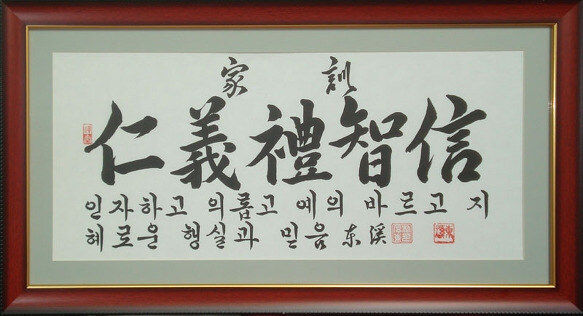 家訓
仁義禮智信
인자하고 의롭고 예의 바르고 지
혜로운 행실과 믿음 东溪